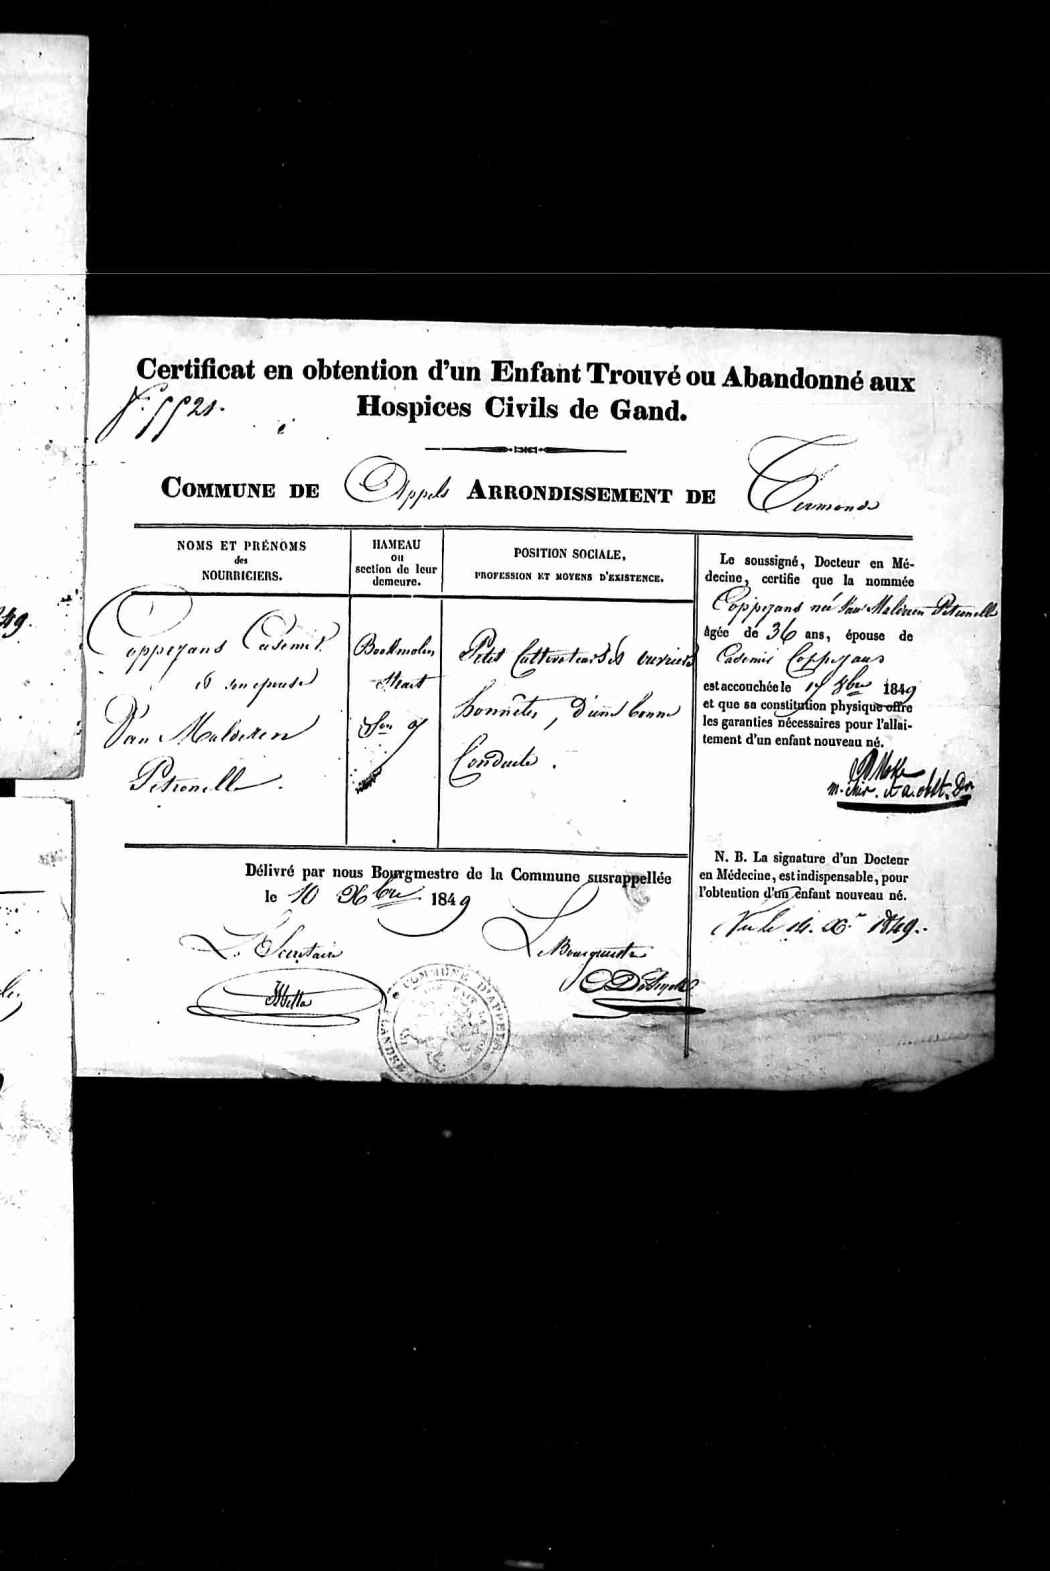 49.
Certificat en obtention d'un Enfant Trouvé ou Abandonné aux
Hospices Civils de Gand.
COMMUNE DE Appels ARRONDISSEMENT DE Termonde
NOMS ET PRÉNOMS
des
NOURRICIERS.
HAMEAU
ou
section de leur
demeure.
POSITION SOCIALE,
PROFESSION ET MOYENS D'EXISTENCE.
Coppejans
et son épouse
Van Malderen
Petronelle.
Straet
Son 9
Petit Cultivateur
honnêtes, d'une bonne
Conduite.
Le soussigné, Docteur en Mé-
decine, certifie que la nommée
Coppejans née Van Malderen Petronelle
âgée de 36 ans, épouse de
Coppejans
est accouchée le 17 8bre 1849
et que sa constitution physique offre
les garanties nécessaires pour l'allai-
tement d'un enfant nouveau né.
N. B. La signature d'un Docteur
en Médecine, est indispensable, pour
l'obtention d'un enfant nouveau né.
Vu le 14. Xr 1849.
Délivré par nous Bourgmestre de la Commune susrappellée
le 10 Xbre 1849
Le Secrétaire
Le Bourgmestre
COMMUNE D'APPELS